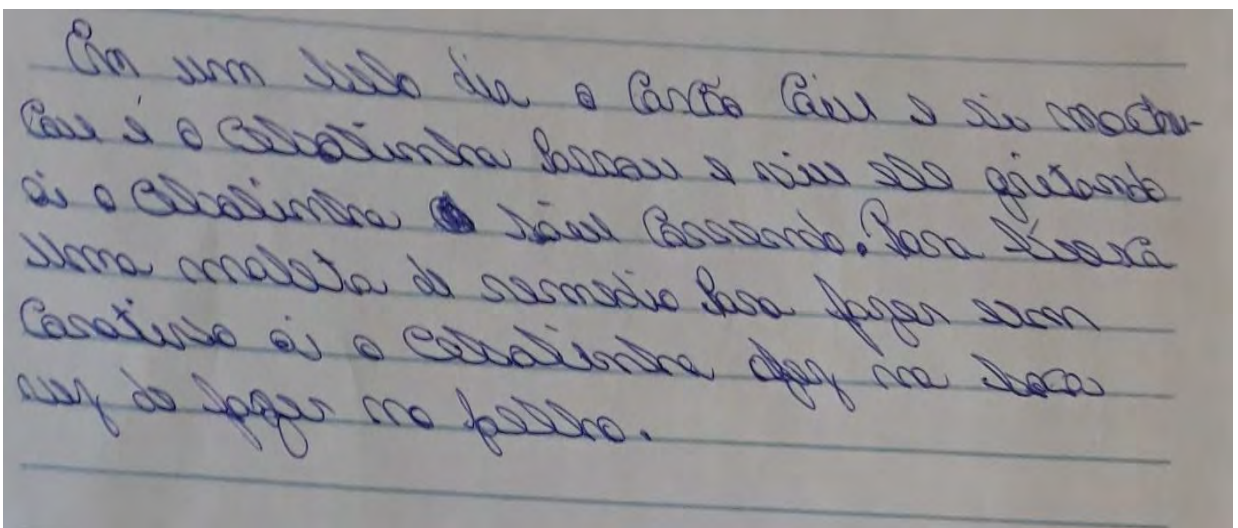 Em um belo dia o Cascão Caiu e si machu-
Cou e o Cebolinha Passou e viu ele gritando
ai o Cebolinha saiu Correndo. Para busca
uma maleta de remedio Para fazer um
Curativo ai o Cebolinha fez na boca
vez de fazer no